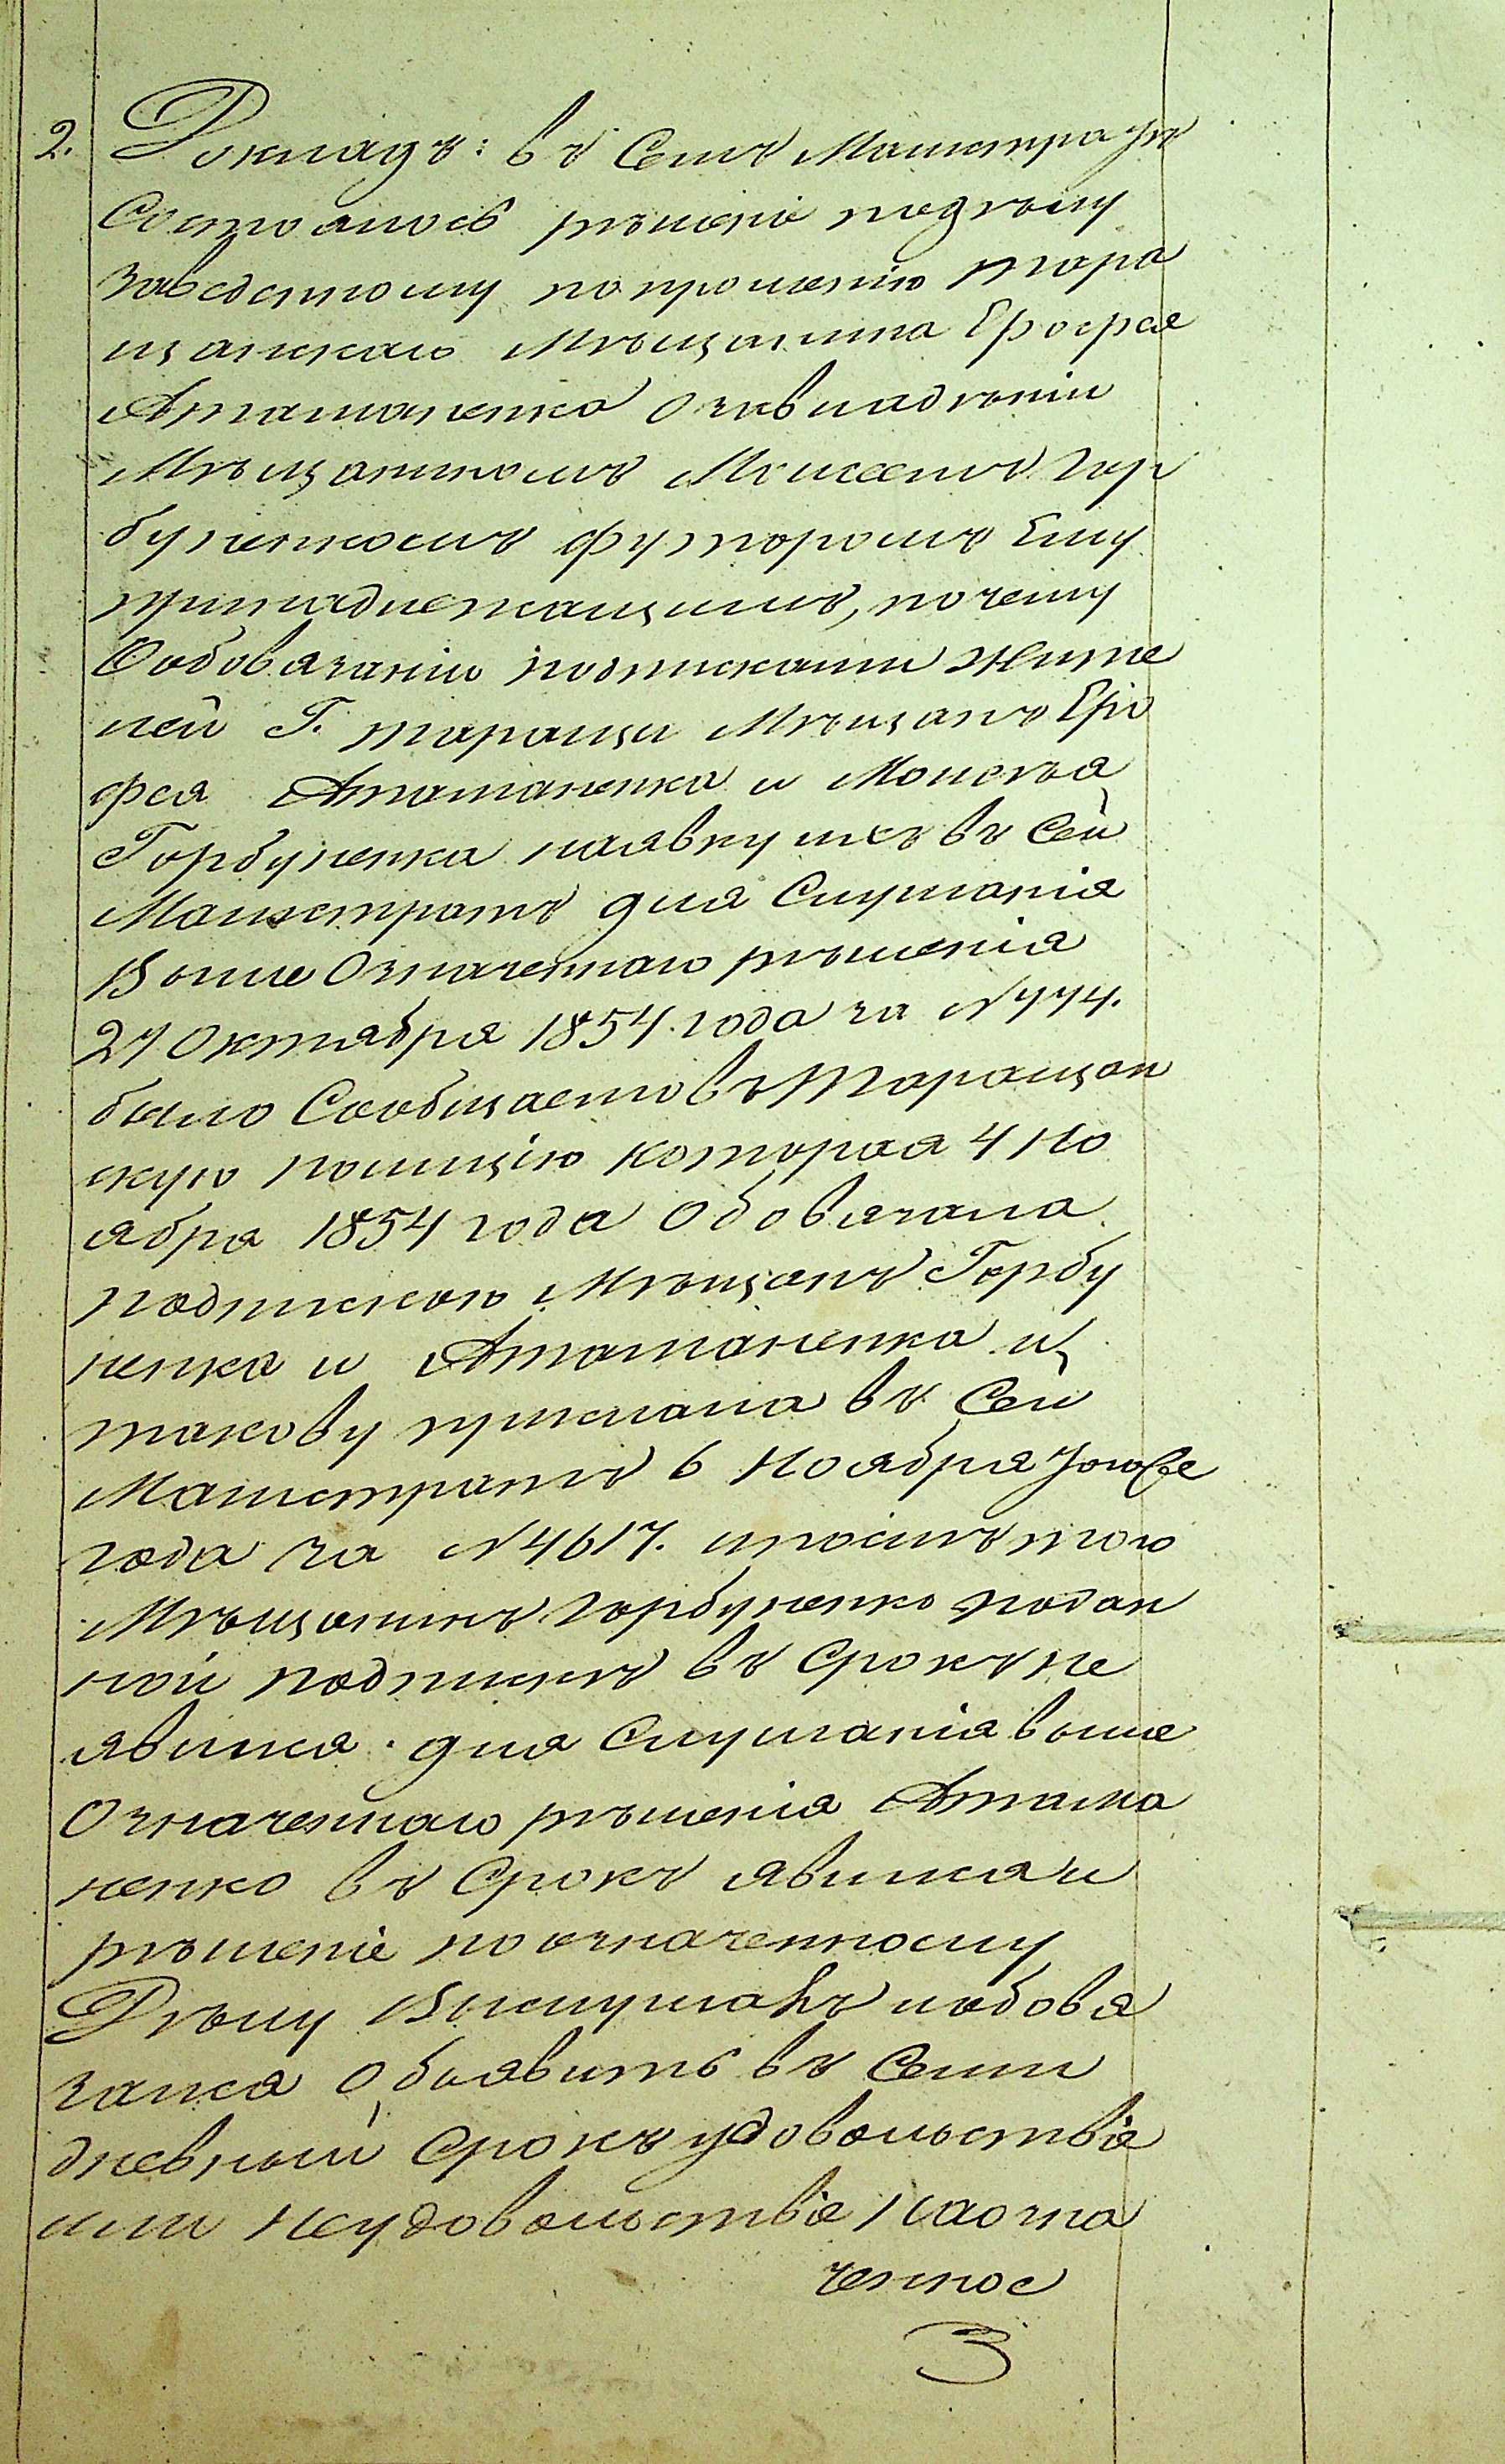 2. Докладъ: въ Семъ Магистратѣ
Состоялось рѣшеніе подѣлу
заведенному попрошенію тара
щанскаго Мѣщанина Ерофея
Атаманенка Озавладѣніи
Мѣщаниномъ Моисеемъ Гор
буненкомъ футоромъ Ему
принадлежащимъ, почему
Ообовязаніи подписками жите
лей Г. таращи Мѣщанъ Еро
фея Атаманенка и Моисѣя
Горбуненка наявку ихъ въ Сей
Магистратъ для Слушанія
Выше Означеннаго рѣшенія
27 Октября 1854. года за N 774.
было Сообщаемо въ Таращан
скую полицію которая 4 Но
ября 1854 года Обовязала
подпискою Мѣщанъ Горбу
ненка и Атаманенка и
такову прислала въ Сей
Магистратъ 6 Ноября тогоже
года за N 4617. ипосемъ того
Мѣщанинъ Горбуненко подан
ной подпискѣ въ Срокъ не
явился для Слушанія выше
Означеннаго рѣшенія Атама
ненко въ Срокъ явился и
рѣшеніе по означенному
Дѣлу Выслушавъ иобовя
зался Объявить въ Семи
дневный Срокъ удовольствіе
или неудовольствіе наозна
ченное